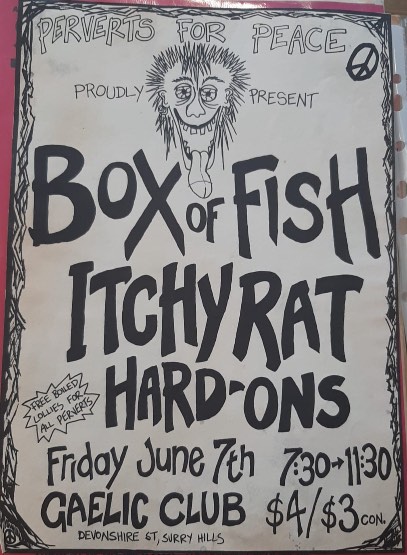 PERVERTS FOR PEACE
PROUDLY PRESENT
BOX OF FISH
ITCHY RAT
HARD-ONS
FREE BOILED
LOLLIES FOR
ALL PERVERTS
Friday June 7th 7:30→11:30
GAELIC CLUB $4/$3 CON.
DEVONSHIRE ST, SURRY HILLS